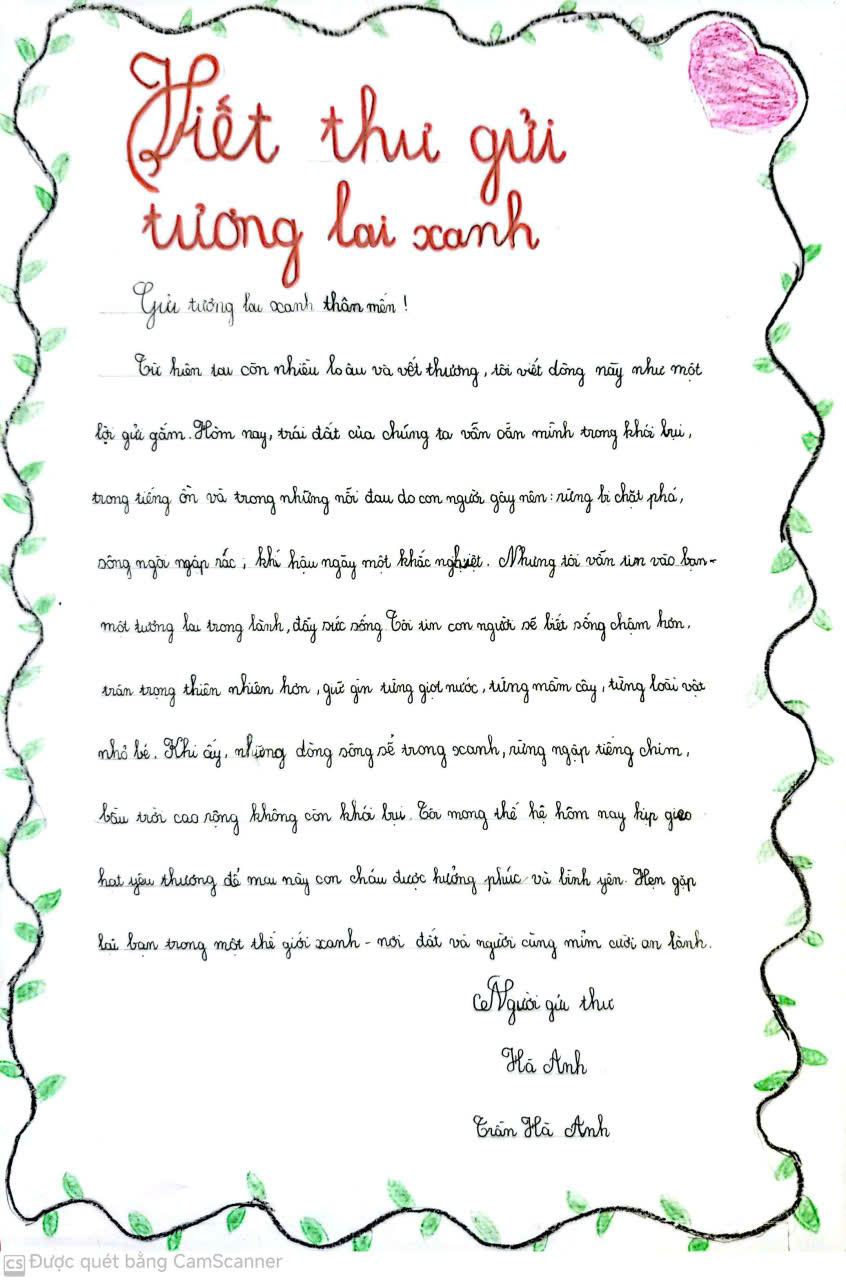 Viết thư gửi
tương lai xanh
Gửi tương lai xanh thân mến!
Từ hiện tại còn nhiều lo âu và vết thương, tôi viết dòng này như một
lời gửi gắm. Hôm nay, trái đất của chúng ta vẫn oằn mình trong khói bụi,
trong tiếng ồn và trong những nỗi đau do con người gây nên: rừng bị chặt phá,
sông ngòi ngập rác; khí hậu ngày một khắc nghiệt. Nhưng tôi vẫn tin vào bạn-
một tương lai trong lành, đầy sức sống. Tôi tin con người sẽ biết sống chậm hơn,
trân trọng thiên nhiên hơn, giữ gìn từng giọt nước, từng mầm cây, từng loài vật
nhỏ bé. Khi ấy, những dòng sông sẽ trong xanh, rừng ngập tiếng chim,
bầu trời cao rộng không còn khói bụi. Tôi mong thế hệ hôm nay kịp gieo
hạt yêu thương để mai này con cháu được hưởng phúc và bình yên. Hẹn gặp
lại bạn trong một thế giới xanh - nơi đất và người cùng mỉm cười an lành.
Người gửi thư
Hà Anh
Trần Hà Anh
CS Được quét bằng CamScanner